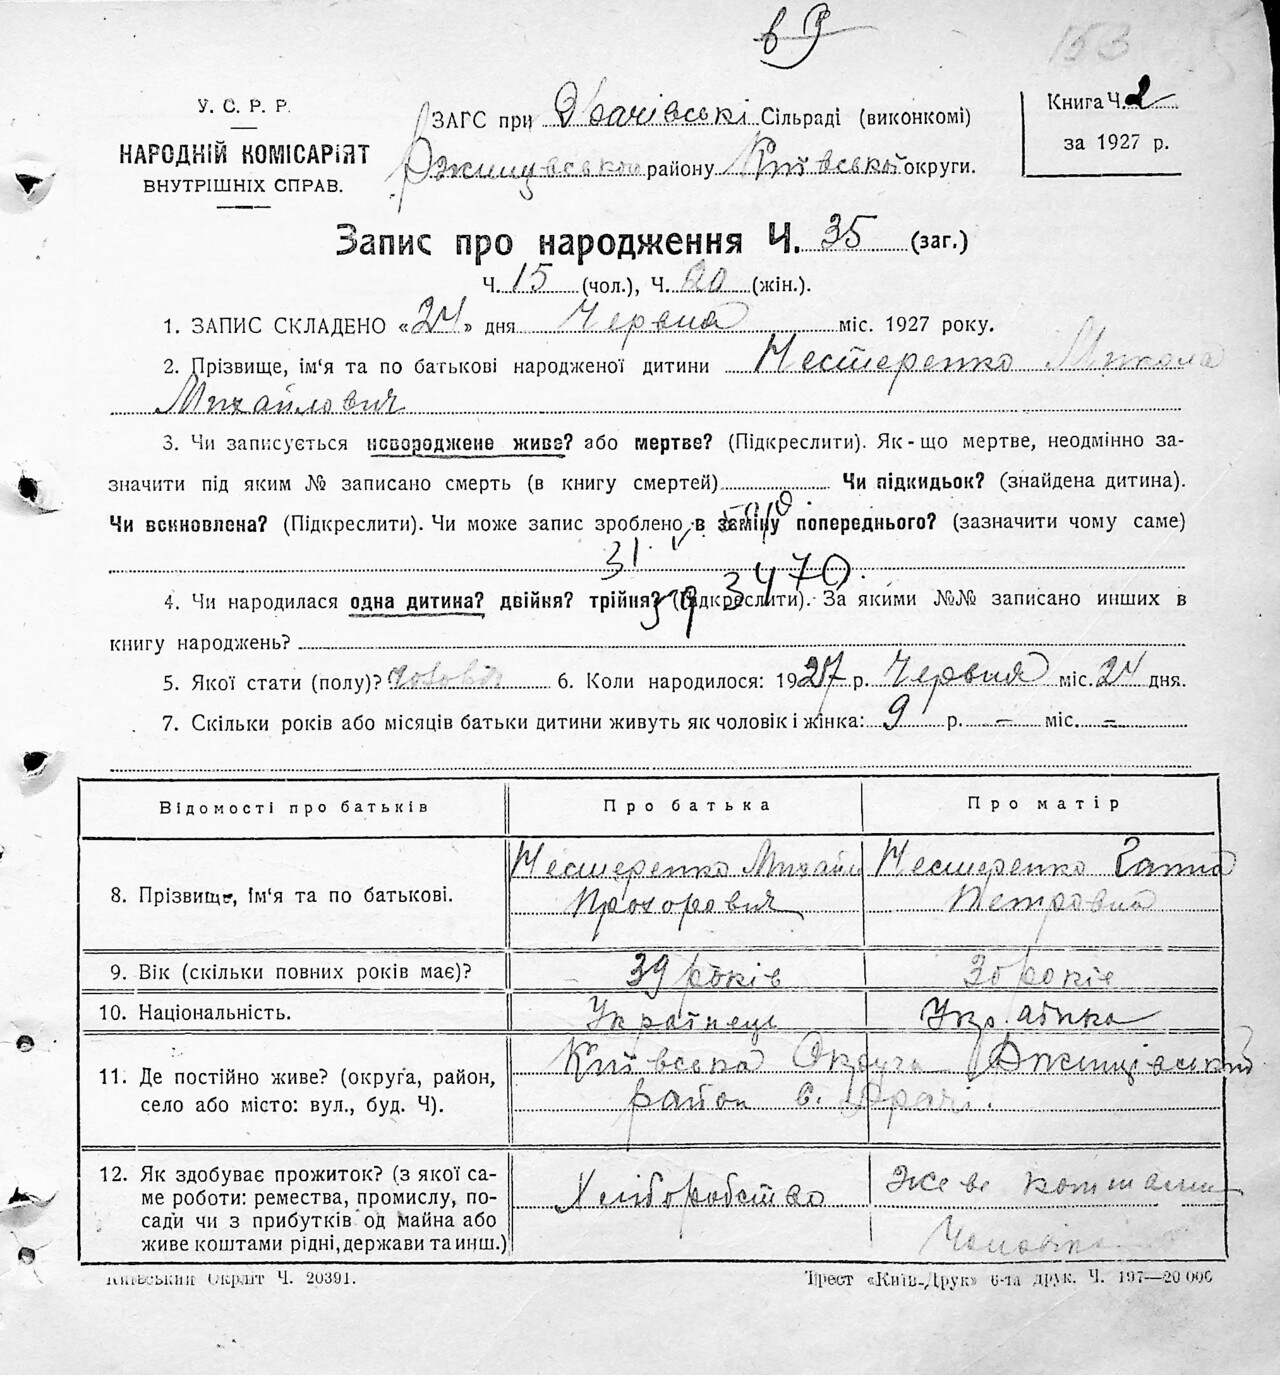 153
У. С. Р. Р.
НАРОДНІЙ КОМІСАРІЯТ
ВНУТРІШНІХ СПРАВ.
ЗАГС при Драчівські Сільраді (виконкомі)
Ржищівської району Київської округи.
Книга Ч. 2
за 1927 р.
Запис про народження Ч. 35 (заг.)
Ч. 15 (чол.), Ч. 20 (жін.).
1. ЗАПИС СКЛАДЕНО «24» дня Червня міс. 1927 року.
2. Прізвище, ім‘я та по батькові народженої дитини Нестеренко Микола
Михайлович
3. Чи записується новороджене живе? або мертве? (Підкреслити). Як-що мертве, неодмінно за-
значити під яким № записано смерть (в книгу смертей) Чи підкидьок? (знайдена дитина).
Чи вснновлена? (Підкреслити). Чи може запис зроблено в заміну попереднього? (зазначити чому саме)
31
3470.
4. Чи народилася одна дитина? двійня? трійня? (Підкреслити). За якими №№ записано инших в
книгу народжень?
5. Якої стати (полу)? 6. Коли народилося: 1927 р. Червня міс. 24 дня.
7. Скільки років або місяців батьки дитини живуть як чоловік і жінка: 9 р. – міс. –
Відомості про батьків
Про батька
Про матір
8. Прізвище, ім‘я та по батькові.
Нестеренко Михайло
Прохорович
Нестеренко Ганна
Петровна
9. Вік (скільки повних років має)?
39 років
30 років
10. Національність.
Українець
Українка
11. Де постійно живе? (округа, район,
село або місто: вул., буд. Ч).
Київська Округа Ржищівський
район с. Драчі.
12. Як здобуває прожиток? (з якої са-
ме роботи: ремества, промислу, по-
сади чи з прибутків од майна або
живе коштами рідні, держави та инш.)
Хліборобство
Живе коштами
Чоловіка
Київський Окрліт Ч. 20391.
Трест «Київ-Друк» 6-та друк. Ч. 197—20 000